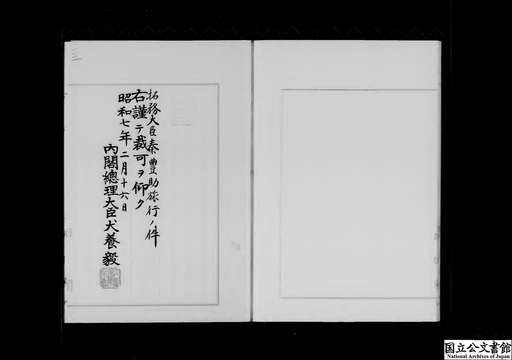 拓務大臣秦豊助旅行ノ件
右謹テ裁可ヲ仰ク
昭和七年二月十六日
内閣總理大臣犬養毅
三
国立公文書館
National Archives of Japan